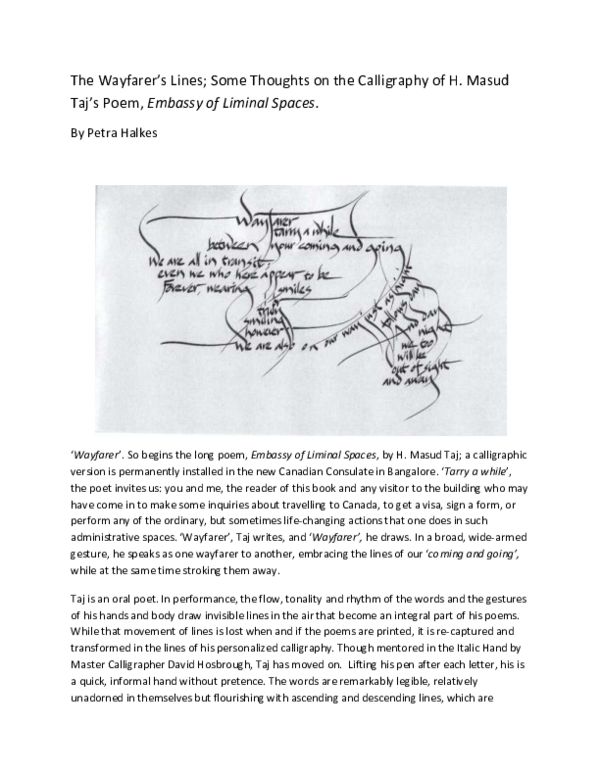 The Wayfarer's Lines; Some Thoughts on the Calligraphy of H. Masud
Taj's Poem, Embassy of Liminal Spaces.
By Petra Halkes
Wayfarer
tarry a while
between your coming and going
We are all in transit;
even we who here appear to be
Forever, wearing smiles
truly
smiling
however
we are also on our way just as night
follows day
And day
night
we too
will be
out of sight
and away
'Wayfarer'. So begins the long poem, Embassy of Liminal Spaces, by H. Masud Taj; a calligraphic
version is permanently installed in the new Canadian Consulate in Bangalore. 'Tarry a while',
the poet invites us: you and me, the reader of this book and any visitor to the building who may
have come in to make some inquiries about travelling to Canada, to get a visa, sign a form, or
perform any of the ordinary, but sometimes life-changing actions that one does in such
administrative spaces. 'Wayfarer', Taj writes, and 'Wayfarer', he draws. In a broad, wide-armed
gesture, he speaks as one wayfarer to another, embracing the lines of our 'coming and going',
while at the same time stroking them away.
Taj is an oral poet. In performance, the flow, tonality and rhythm of the words and the gestures
of his hands and body draw invisible lines in the air that become an integral part of his poems.
While that movement of lines is lost when and if the poems are printed, it is re-captured and
transformed in the lines of his personalized calligraphy. Though mentored in the Italic Hand by
Master Calligrapher David Hosbrough, Taj has moved on.  Lifting his pen after each letter, his is
a quick, informal hand without pretence. The words are remarkably legible, relatively
unadorned in themselves but flourishing with ascending and descending lines, which are